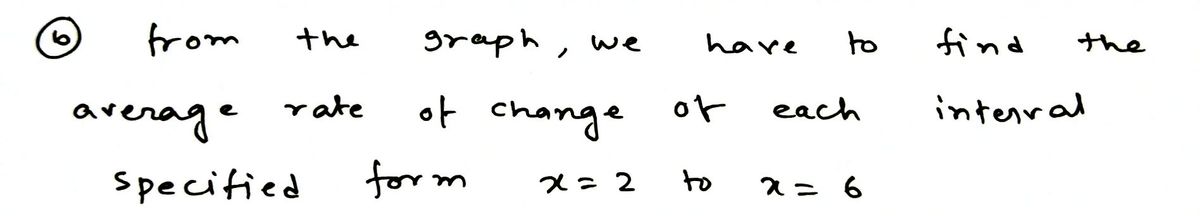 (b) from the graph, we have to find the
average rate of change of each interval
specified form x = 2 to x = 6